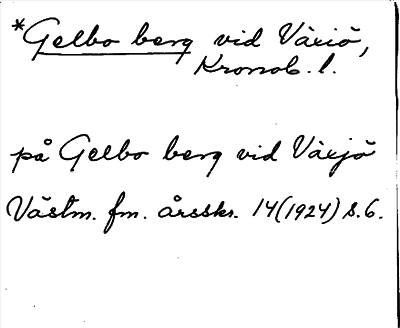 *Gelbo berg vid Växiö,
Kronob. l.
på Gelbo berg vid Växjö
Västm. fm. årsskr. 14(1924) s. 6.